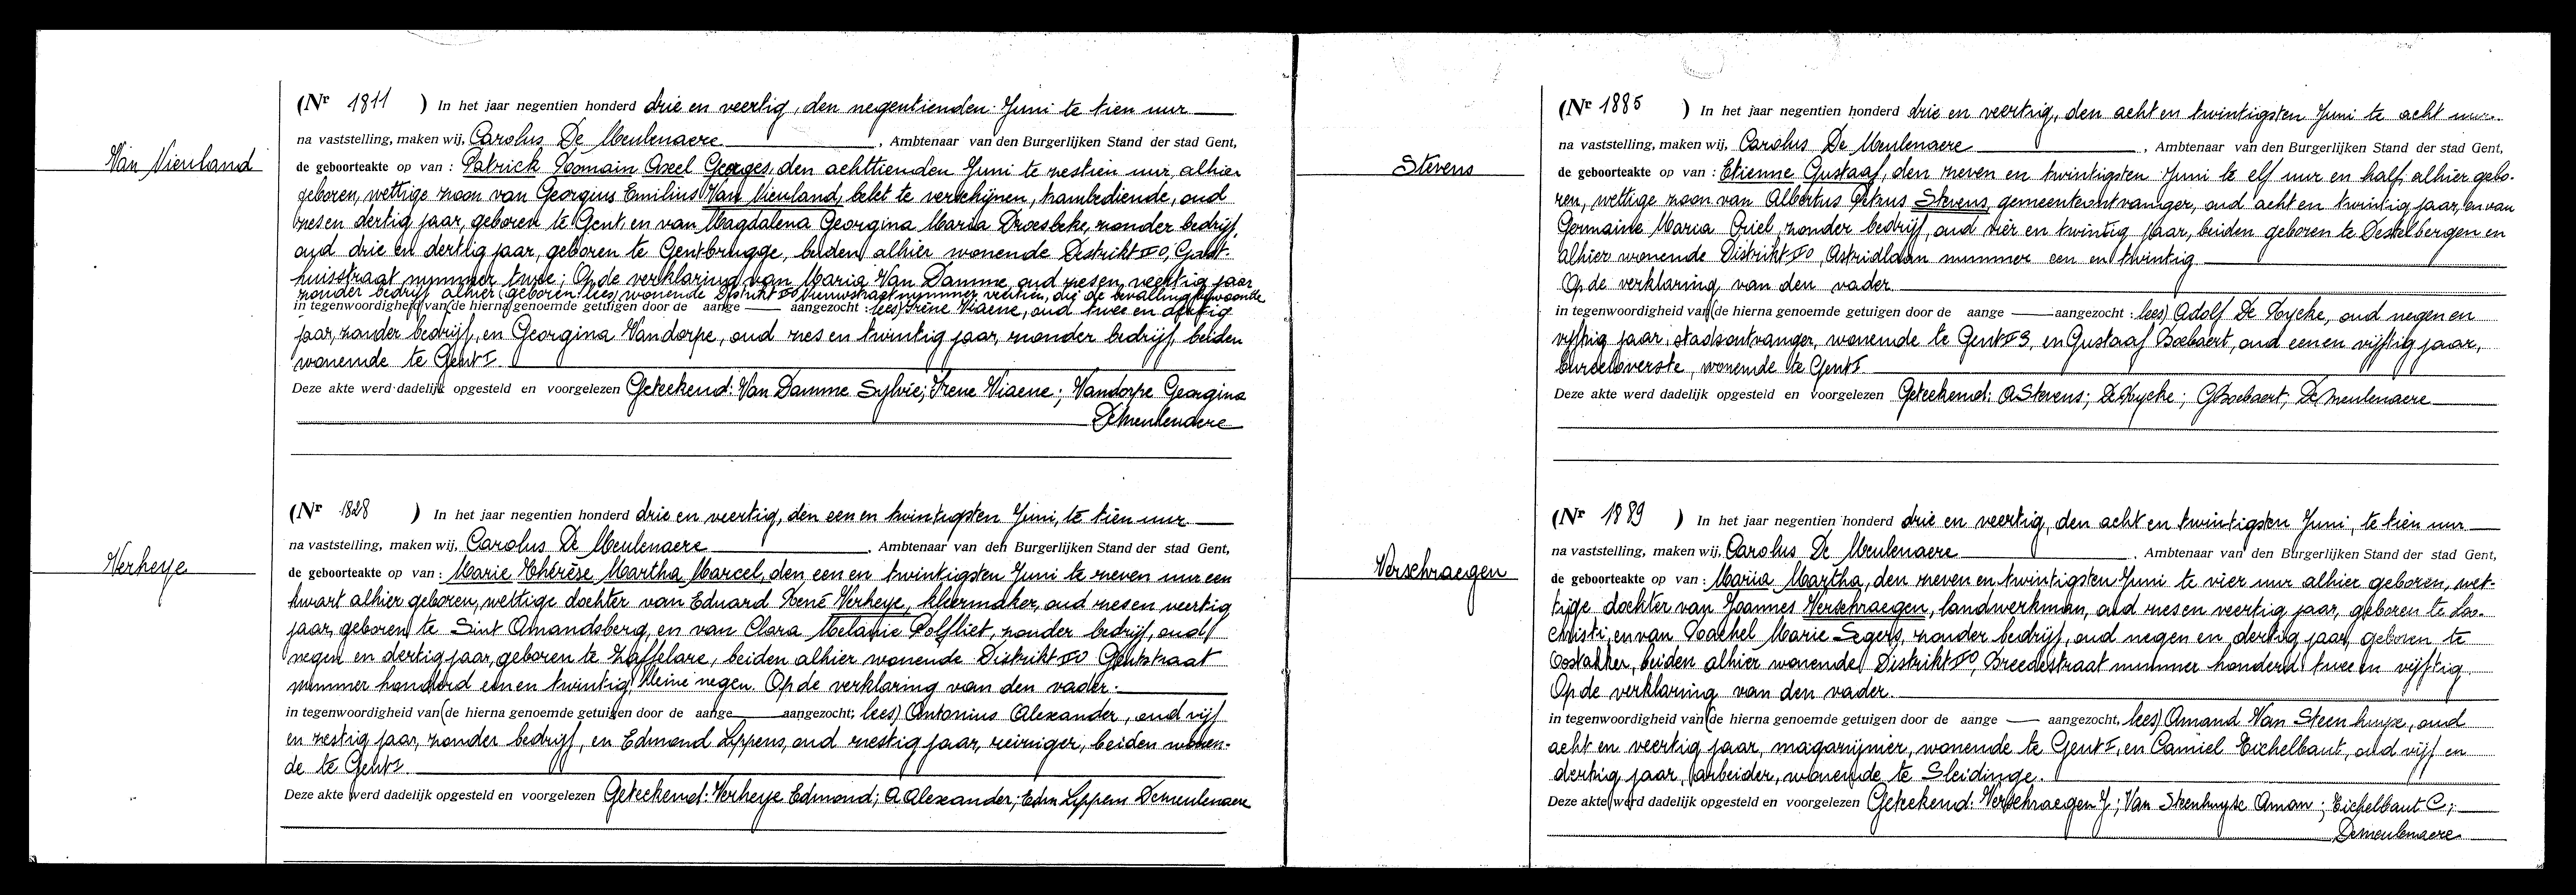 Van Nieuland
(Nr 1811 ) In het jaar negentien honderd drie en veertig, den negentienden Juni te tien uur
na vaststelling, maken wij, Carolus De Meulenaere, Ambtenaar van den Burgerlijken Stand der stad Gent,
de geboorteakte op van : Patrick Romain Axel Georges, den achttienden Juni te zestien uur, alhier
geboren, wettige zoon van Georgius Emilius Van Nieuland, belet te verschijnen, bediende, oud
zes en dertig jaar, geboren te Gent, en van Magdalena Georgina Maria Droesbeke, zonder bedrijf,
oud drie en dertig jaar, geboren te Gentbrugge, beiden alhier wonende Distrikt IV, Gast-
huisstraat nummer twee; Op de verklaring van Maria Van Damme, oud zes en veertig jaar
zonder bedrijf alhier (geboren lees) wonende Distrikt IV nummer veertien, die de bevalling bijwoonde
in tegenwoordigheid van (de hierna genoemde getuigen door de aange — aangezocht : lees) Irène Viaene, oud twee en dertig
jaar, zonder bedrijf, en Georgina Vandorpe, oud zes en twintig jaar, zonder bedrijf, beiden
wonende te Gent I.
Deze akte werd dadelijk opgesteld en voorgelezen Geteekend: Van Damme Sylvie; Irene Viaene; Vandorpe Georgina
Demeulenaere
Verheye
(Nr 1828 ) In het jaar negentien honderd drie en veertig, den een en twintigsten Juni, te tien uur
na vaststelling, maken wij, Carolus De Meulenaere, Ambtenaar van den Burgerlijken Stand der stad Gent,
de geboorteakte op van : Marie Thérèse Martha Marcel, den een en twintigsten Juni te zeven uur een
kwart alhier geboren, wettige dochter van Eduard René Verheye, kleermaker, oud zes en veertig
jaar, geboren te Sint Amandsberg, en van Clara Melanie Polfliet, zonder bedrijf, oud
negen en dertig jaar, geboren te Zaffelare, beiden alhier wonende Distrikt IV Gentstraat
nummer honderd een en twintig, kleine negen. Op de verklaring van den vader.
in tegenwoordigheid van (de hierna genoemde getuigen door de aange — aangezocht; lees) Antonius Alexander, oud vijf
en zestig jaar, zonder bedrijf, en Edmond Lippens, oud zestig jaar, reiniger, beiden wonen-
de te Gent I.
Deze akte werd dadelijk opgesteld en voorgelezen Geteekend: Verheye Edmond; A Alexander; Edm Lippens Demeulenaere
Stevens
(Nr 1885 ) In het jaar negentien honderd drie en veertig, den acht en twintigsten Juni te acht uur.
na vaststelling, maken wij, Carolus De Meulenaere, Ambtenaar van den Burgerlijken Stand der stad Gent,
de geboorteakte op van : Etienne Gustaaf, den zeven en twintigsten Juni te elf uur en half, alhier gebo-
ren, wettige zoon van Albertus Petrus Stevens, gemeenteontvanger, oud acht en twintig jaar, en van
Germaine Maria Criel, zonder bedrijf, oud vier en twintig jaar, beiden geboren te Destelbergen en
alhier wonende Distrikt IV, Astridlaan nummer een en twintig
Op de verklaring van den vader.
in tegenwoordigheid van (de hierna genoemde getuigen door de aange — aangezocht : lees) Adolf De Rycke, oud negen en
vijftig jaar, stadsontvanger, wonende te Gent, en Gustaaf Boebaert, oud een en vijftig jaar,
bureeloverste, wonende te Gent I.
Deze akte werd dadelijk opgesteld en voorgelezen Geteekend: A Stevens; De Rycke; G Boebaert, Demeulenaere
Verschraegen
(Nr 1889 ) In het jaar negentien honderd drie en veertig, den acht en twintigsten Juni, te tien uur
na vaststelling, maken wij, Carolus De Meulenaere, Ambtenaar van den Burgerlijken Stand der stad Gent,
de geboorteakte op van : Maria Martha, den zeven en twintigsten Juni te vier uur alhier geboren, wet-
tige dochter van Joannes Verschraegen, landwerkman, oud zes en veertig jaar, geboren te Loo-
christi, en van Rachel Marie Segers, zonder bedrijf, oud negen en dertig jaar, geboren te
Oostakker, beiden alhier wonende Distrikt IV, Breedestraat nummer honderd twee en vijftig.
Op de verklaring van den vader.
in tegenwoordigheid van (de hierna genoemde getuigen door de aange — aangezocht, lees) Amand Van Steenhuyse, oud
acht en veertig jaar, magazijnier, wonende te Gent I, en Camiel Eichelbaut, oud vijf en
dertig jaar, arbeider, wonende te Sleidinge.
Deze akte werd dadelijk opgesteld en voorgelezen Geteekend: Verschraegen J; Van Steenhuyse Aman; Eichelbaut C;
Demeulenaere